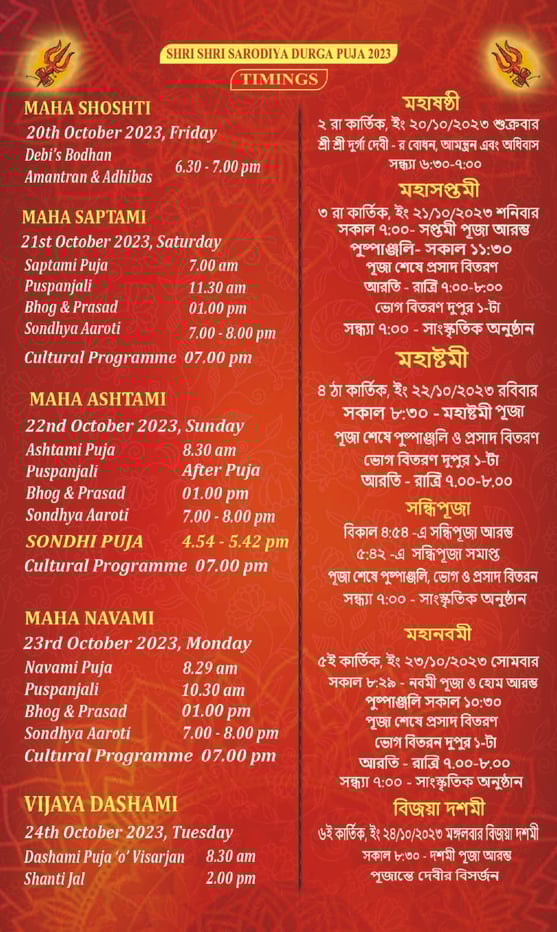 SHRI SHRI SARODIYA DURGA PUJA 2023
TIMINGS
MAHA SHOSHTI
20th October 2023, Friday
Debi's Bodhan
Amantran & Adhibas
6.30 - 7.00 pm
MAHA SAPTAMI
21st October 2023, Saturday
Saptami Puja 7.00 am
Puspanjali 11.30 am
Bhog & Prasad 01.00 pm
Sondhya Aaroti 7.00 - 8.00 pm
Cultural Programme 07.00 pm
MAHA ASHTAMI
22nd October 2023, Sunday
Ashtami Puja 8.30 am
Puspanjali After Puja
Bhog & Prasad 01.00 pm
Sondhya Aaroti 7.00 - 8.00 pm
SONDHI PUJA 4.54 - 5.42 pm
Cultural Programme 07.00 pm
MAHA NAVAMI
23rd October 2023, Monday
Navami Puja 8.29 am
Puspanjali 10.30 am
Bhog & Prasad 01.00 pm
Sondhya Aaroti 7.00 - 8.00 pm
Cultural Programme 07.00 pm
VIJAYA DASHAMI
24th October 2023, Tuesday
Dashami Puja 'o' Visarjan 8.30 am
Shanti Jal 2.00 pm
মহাষষ্ঠী
২ রা কার্তিক, ইং ২০/১০/২০২৩ শুক্রবার
শ্রী শ্রী দুর্গা দেবী - র বোধন, আমন্ত্রন এবং অধিবাস
সন্ধ্যা ৬:৩০-৭:০০
মহাসপ্তমী
৩ রা কার্তিক, ইং ২১/১০/২০২৩ শনিবার
সকাল ৭:০০- সপ্তমী পূজা আরম্ভ
পুষ্পাঞ্জলি- সকাল ১১:৩০
পূজা শেষে প্রসাদ বিতরণ
আরতি - রাত্রি ৭:০০-৮:০০
ভোগ বিতরণ দুপুর ১-টা
সন্ধ্যা ৭:০০ - সাংস্কৃতিক অনুষ্ঠান
মহাষ্টমী
৪ ঠা কার্তিক, ইং ২২/১০/২০২৩ রবিবার
সকাল ৮:৩০ - মহাষ্টমী পূজা
পূজা শেষে পুষ্পাঞ্জলি ও প্রসাদ বিতরণ
ভোগ বিতরণ দুপুর ১-টা
আরতি - রাত্রি ৭.০০-৮.০০
সন্ধিপূজা
বিকাল ৪:৫৪ -এ সন্ধিপূজা আরম্ভ
৫:৪২ -এ সন্ধিপূজা সমাপ্ত
পূজা শেষে পুষ্পাঞ্জলি, ভোগ ও প্রসাদ বিতরন
সন্ধ্যা ৭:০০ - সাংস্কৃতিক অনুষ্ঠান
মহানবমী
৫ই কার্তিক, ইং ২৩/১০/২০২৩ সোমবার
সকাল ৮:২৯ - নবমী পূজা ও হোম আরম্ভ
পুষ্পাঞ্জলি সকাল ১০:৩০
পূজা শেষে প্রসাদ বিতরণ
ভোগ বিতরন দুপুর ১-টা
আরতি - রাত্রি ৭.০০-৮.০০
সন্ধ্যা ৭:০০ - সাংস্কৃতিক অনুষ্ঠান
বিজয়া দশমী
৬ই কার্তিক, ইং ২৪/১০/২০২৩ মঙ্গলবার বিজয়া দশমী
সকাল ৮:৩০ - দশমী পূজা আরম্ভ
পূজান্তে দেবীর বিসর্জন